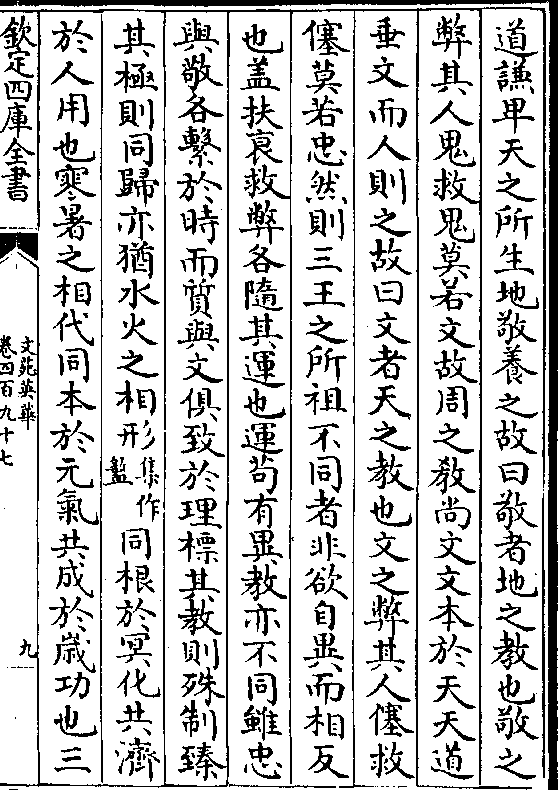 道謙卑天之所生地敬養之故曰敬者地之教也敬之
弊其人鬼救鬼莫若文故周之教尚文文本於天天道
垂文而人則之故曰文者天之教也文之弊其人僿救
僿莫若忠然則三王之所祖不同者非欲自異而相反
也盖扶衰救弊各隨其運也運茍有異教亦不同雖忠
與敬各繫於時而質與文俱致於理標其教則殊制臻
其極則同歸亦猶水火之相形集作盭同根於冥化共濟
於人用也寒暑之相代同本於元氣共成於歲功也三
欽定四庫全書
文苑英華
卷四百九十七
九